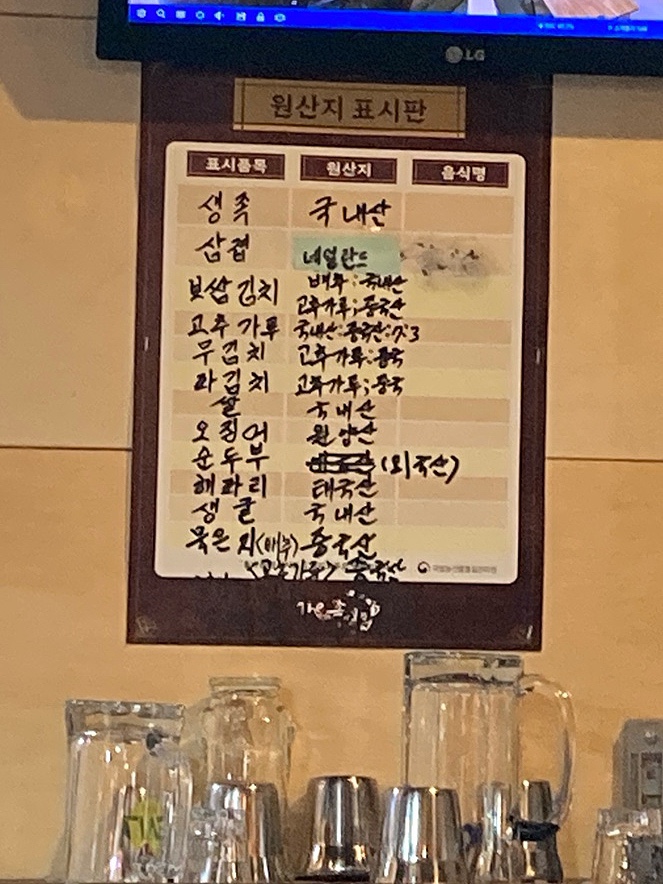 LG
원산지 표시판
표시품목 원산지 음식명
생족 국내산
삼겹 네덜란드
보쌈김치 배추;국내산
고추가루;중국산
고추가루 국내산:중국산:7:3
무김치 고추가루:중국
파김치 고추가루;중국
쌀 국내산
오징어 원양산
순두부 (외국산)
해파리 태국산
생굴 국내산
묵은지(배추) 중국산
(고추가루) 중국산